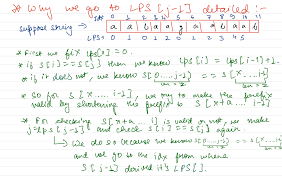 * Why we go to LPS[j-1] detailed :-
0 1 2 3 4 5 6 7 8 9 10 11
suppose string
LPS= 0 1 0 1 2 0 1 2 2 3 4 5
* First we fix lps[0] = 0.
* if s[i] == s[j] then we know lps[i] = lps[i-1]+1.
* if it does not, we know s[0....j-1] == s[x....i-1]
* so for s[x.....i-1], we try to make the prefix
valid by shortening this prefix to s[x+a ...i-1]
* For checking s[x+a ... i] is valid or not, we make
j=lps[j-1] and check s[i] == s[j] again.
We do so because we know s[0.....j-1] == s[x....i-1]
and we go to the idx from where
s[j-1] derived it's LPS[].